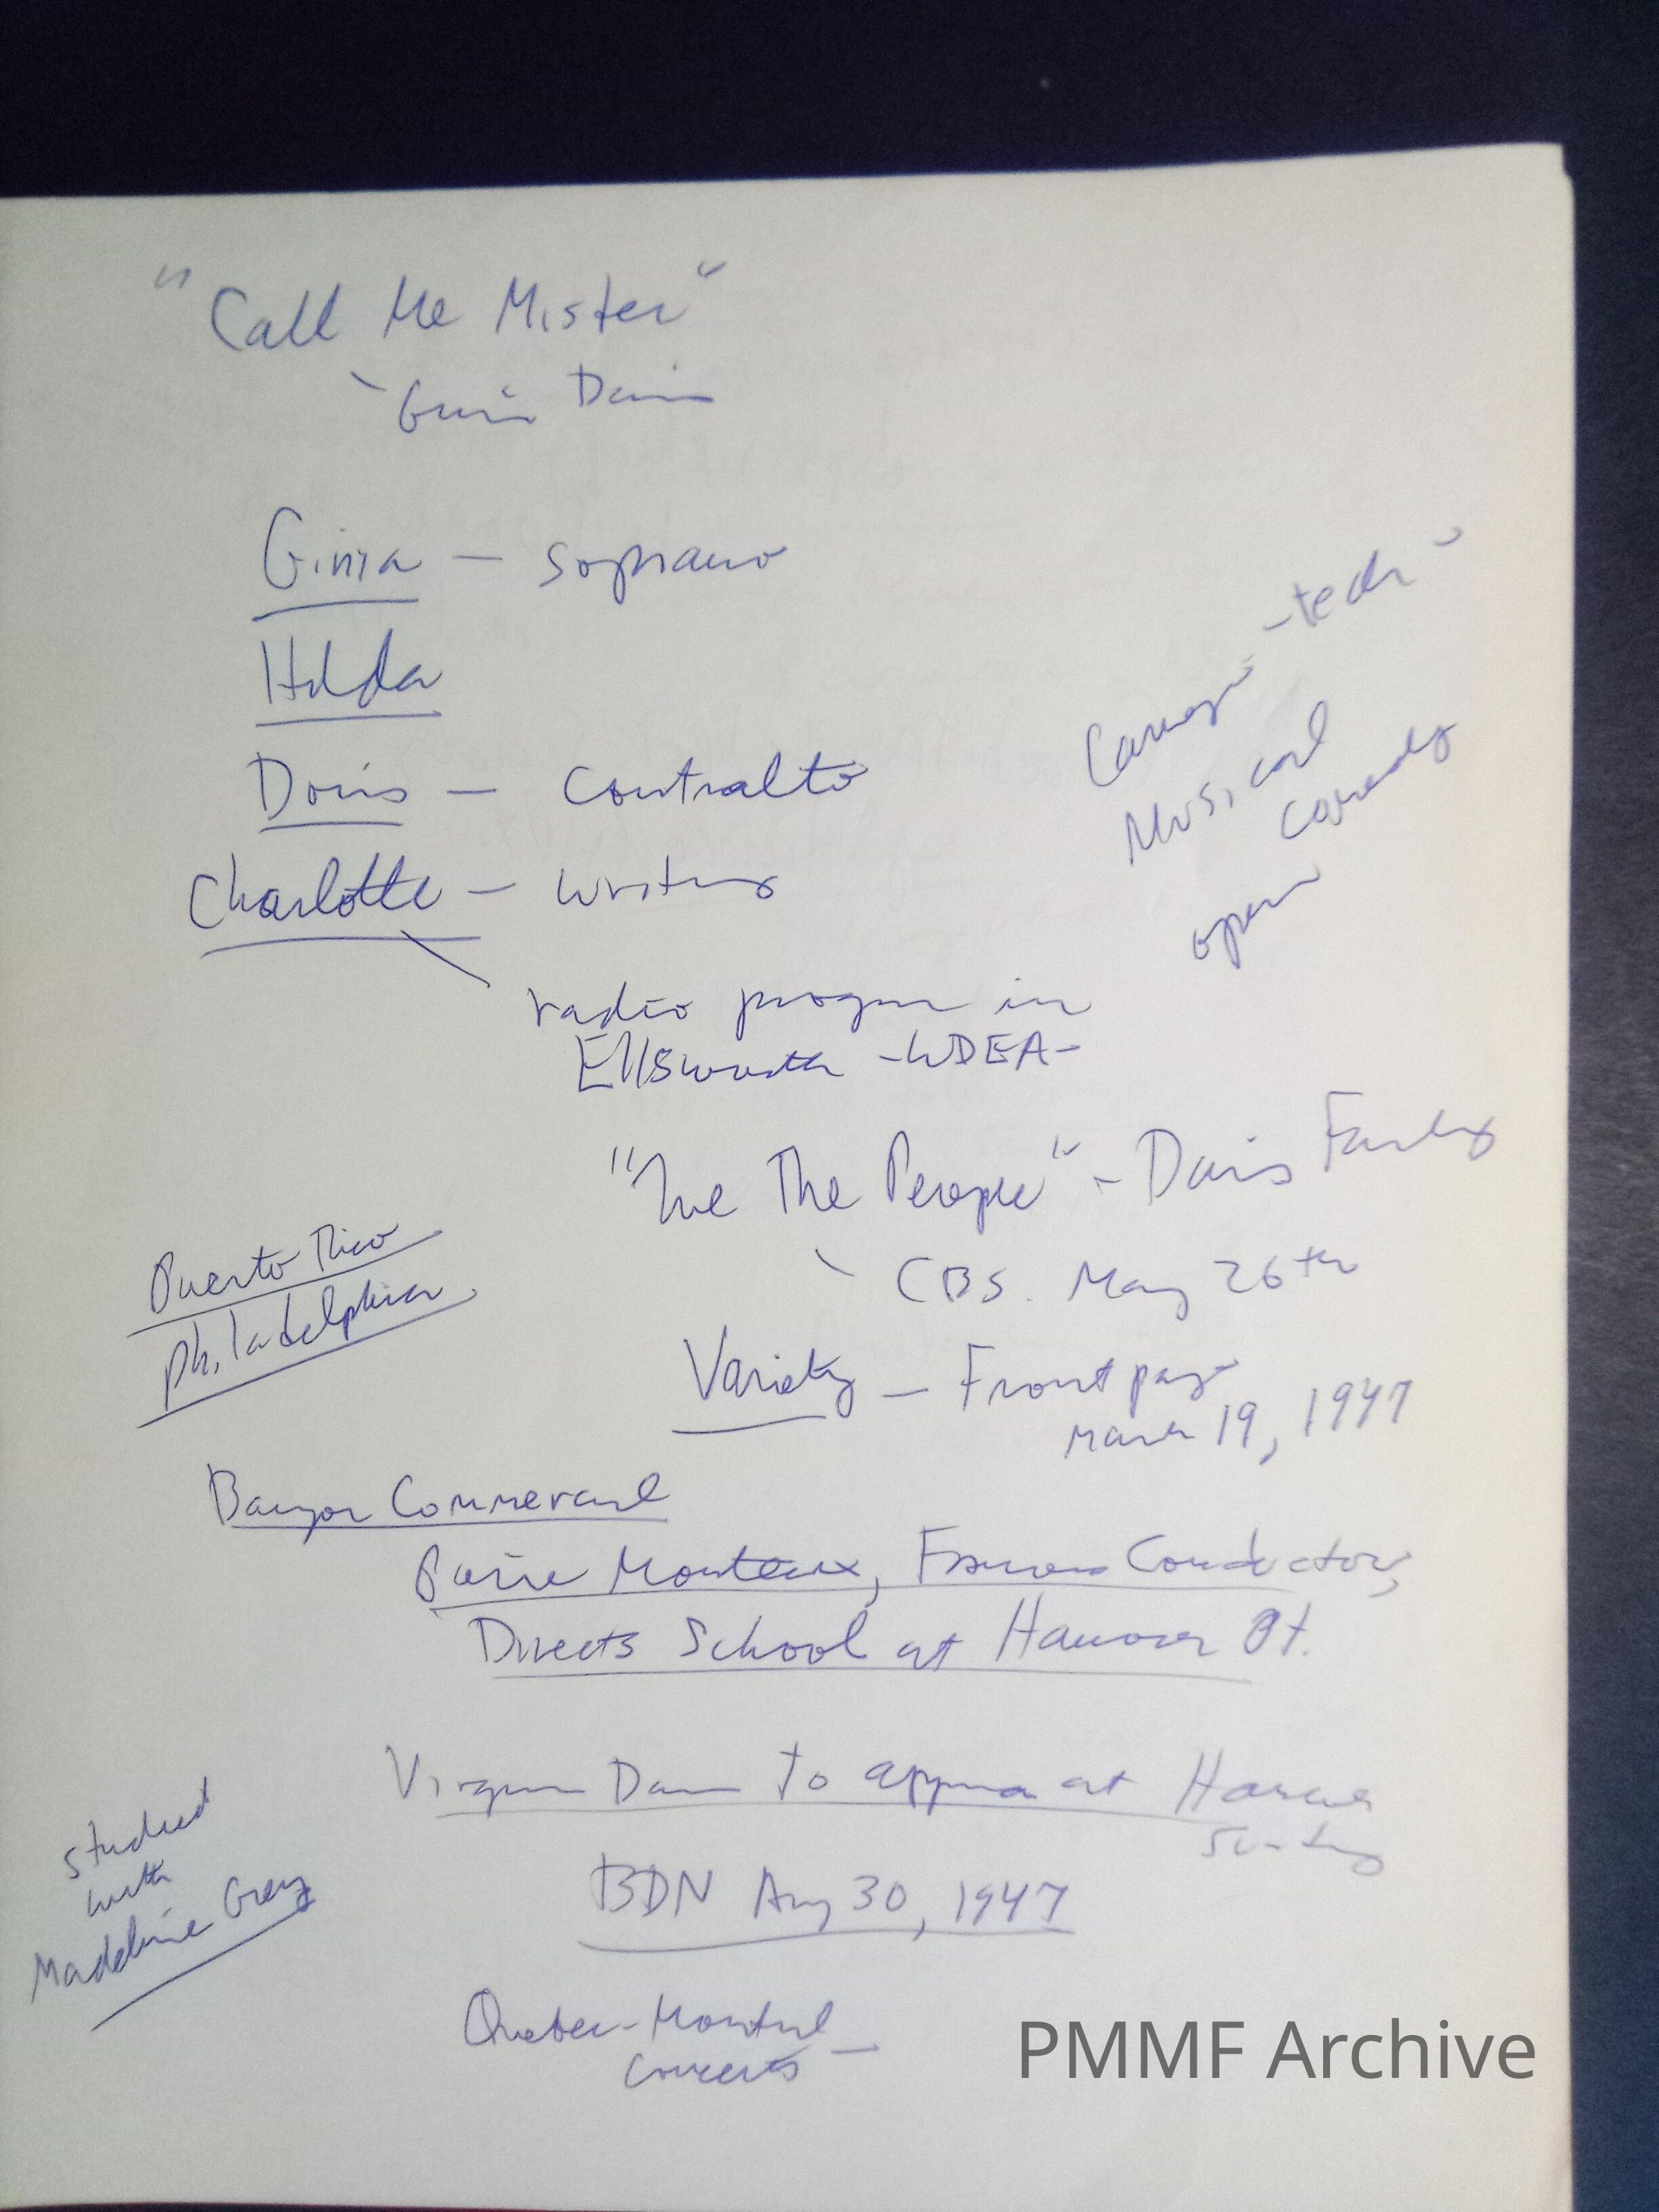 "Call Me Mister"
Davis
Ginia — soprano
Hilda
Doris — Contralto
Charlotte — writing
radio program in
Ellsworth -WDEA-
Carnegie -tech-
Musical
comedy
opera
"We The People" - Davis Family
CBS. May 26th
Puerto Rico
Philadelphia
Variety — Front page
March 19, 1947
Bangor Commercial
Pierre Monteux, Famous Conductor,
Directs School at Hancock Pt.
Virginia Davis To appear at Hancock
Sunday
BDN Aug 30, 1947
studied
with
Madeline Grey
Quebec-Montreal —
concerts
PMMF Archive